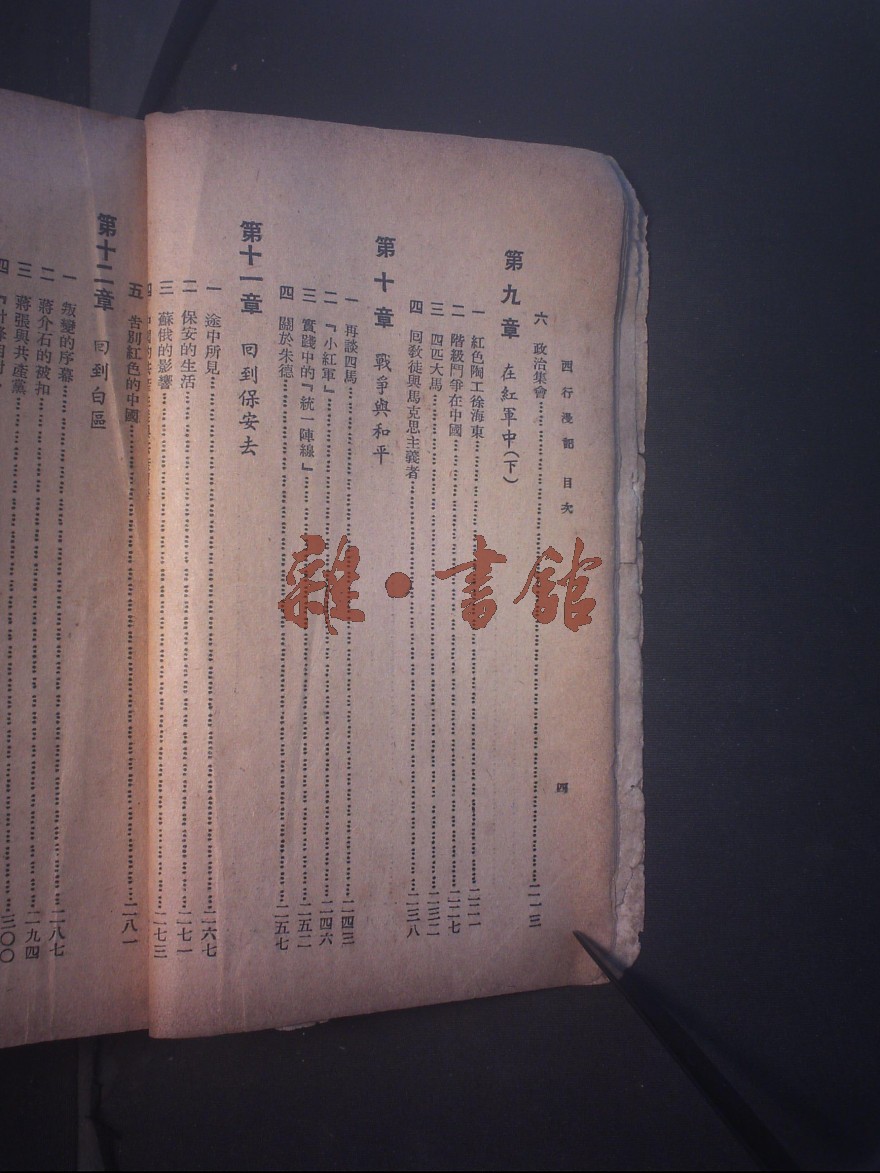 西行漫記 目次
四
六 政治集會……二一三
第九章 在紅軍中(下)
一 紅色陶工徐海東……二二一
二 階級鬥爭在中國……二二七
三 四匹大馬……二三二
四 囘敎徒與馬克思主義者……二三八
第十章 戰爭與和平
一 再談四馬……二四三
二 『小紅軍』……二四六
三 實踐中的『統一陣線』……二五二
四 關於朱德……二五七
第十一章 囘到保安去
一 途中所見……二六七
二 保安的生活……二七一
三 蘇俄的影響……二七三
五 告別紅色的中國……二八一
第十二章 囘到白區
一 叛變的序幕……二八七
二 蔣介石的被扣……二九四
三 蔣張與共產黨……三〇〇
四
雜·書館